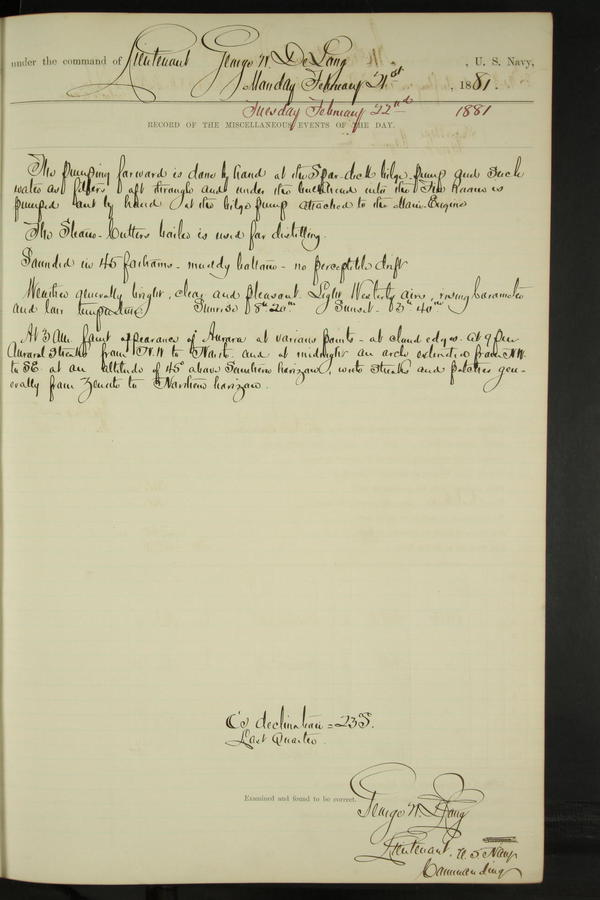 under the command of Lieutenant George W. De Long, U. S. Navy,
Monday February 21st, 1881.
Tuesday February 22nd 1881
RECORD OF THE MISCELLANEOUS EVENTS OF THE DAY.
The pumping forward is done by hand at the Spar-deck bilge pump and such
water as filters aft through and under the bulkhead into the Fire Room is
pumped out by hand at the bilge pump attached to the Main Engine
The Steam-Cutters boiler is used for distilling.
Sounded in 45 fathoms - muddy bottom - no perceptible drift
Weather generally bright, clear and pleasant. Light Westerly airs, rising barometer
and low temperature. Sunrise 8h 20m Sunset 3h 40m
At 3 AM faint appearance of Aurora at various points - at cloud edges. At 9 PM
Auroral Streaks from N.W to North and at midnight an arch extended from N.W.
to SE at an altitude of 45° above Southern horizon, with streaks and patches gen-
erally from Zenith to Northern horizon.
☾'s declination = 23 S.
Last Quarter
Examined and found to be correct.
George W. De Long
Lieutenant, U. S. Navy
Commanding